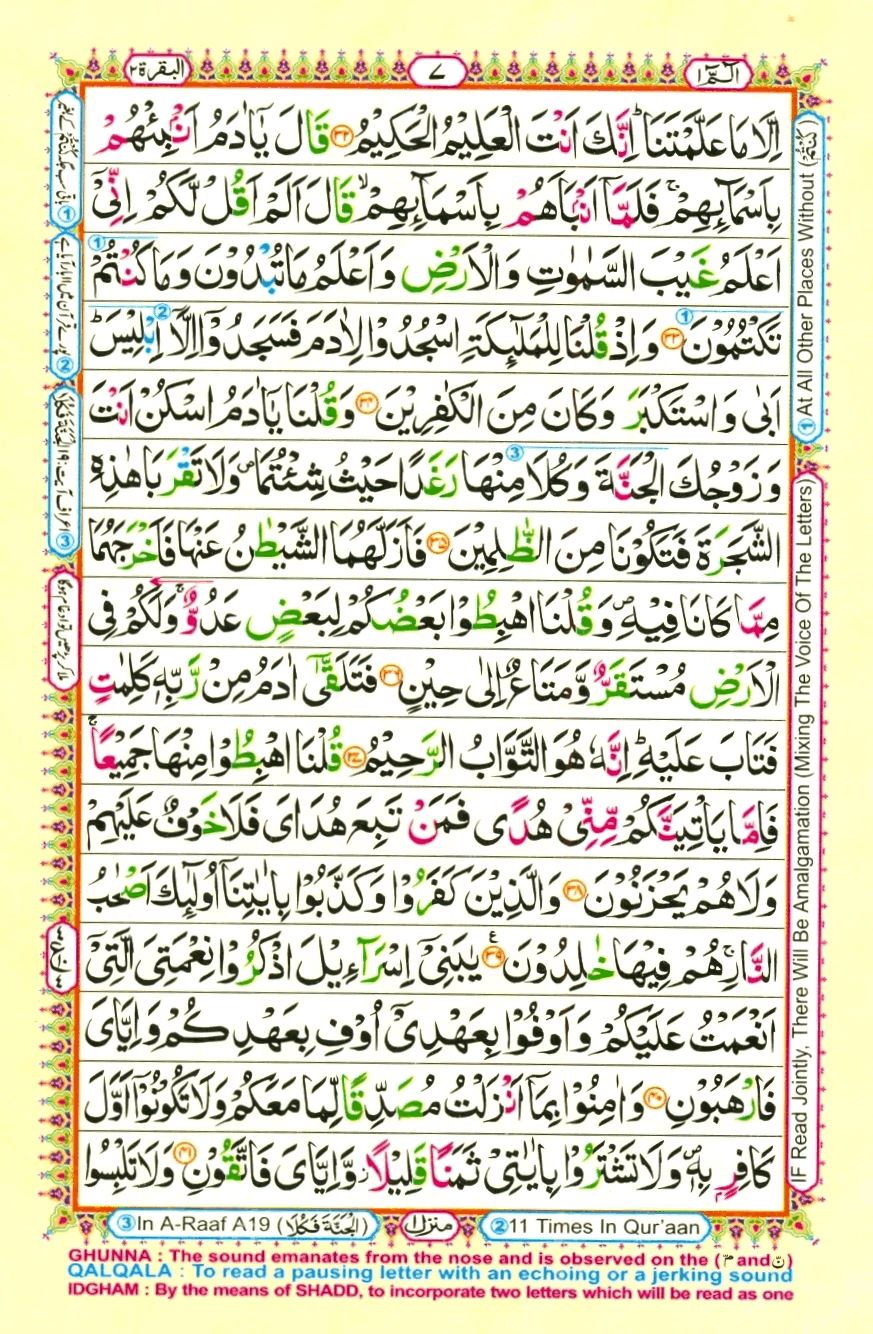 الٓمّٓ ١
٧
البقرة ٢
اِلَّا مَا عَلَّمْتَنَا ؕ اِنَّكَ اَنْتَ الْعَلِیْمُ الْحَكِیْمُ ﴿۳۲﴾ قَالَ یٰۤاٰدَمُ اَنْۢبِئْهُمْ
بِاَسْمَآىِٕهِمْ ۚ فَلَمَّاۤ اَنْۢبَاَهُمْ بِاَسْمَآىِٕهِمْ ۙ قَالَ اَلَمْ اَقُلْ لَّكُمْ اِنِّیْۤ
اَعْلَمُ غَیْبَ السَّمٰوٰتِ وَ الْاَرْضِ وَ اَعْلَمُ مَا تُبْدُوْنَ وَ مَا كُنْتُمْ
تَكْتُمُوْنَ ﴿۳۳﴾ وَ اِذْ قُلْنَا لِلْمَلٰٓىِٕكَةِ اسْجُدُوْا لِاٰدَمَ فَسَجَدُوْۤا اِلَّاۤ اِبْلِیْسَ ؕ
اَبٰى وَ اسْتَكْبَرَ وَ كَانَ مِنَ الْكٰفِرِیْنَ ﴿۳۴﴾ وَ قُلْنَا یٰۤاٰدَمُ اسْكُنْ اَنْتَ
وَ زَوْجُكَ الْجَنَّةَ وَ كُلَا مِنْهَا رَغَدًا حَیْثُ شِئْتُمَا ۪ وَ لَا تَقْرَبَا هٰذِهِ
الشَّجَرَةَ فَتَكُوْنَا مِنَ الظّٰلِمِیْنَ ﴿۳۵﴾ فَاَزَلَّهُمَا الشَّیْطٰنُ عَنْهَا فَاَخْرَجَهُمَا
مِمَّا كَانَا فِیْهِ ۪ وَ قُلْنَا اهْبِطُوْا بَعْضُكُمْ لِبَعْضٍ عَدُوٌّ ۚ وَ لَكُمْ فِی
الْاَرْضِ مُسْتَقَرٌّ وَّ مَتَاعٌ اِلٰى حِیْنٍ ﴿۳۶﴾ فَتَلَقّٰۤى اٰدَمُ مِنْ رَّبِّهٖ كَلِمٰتٍ
فَتَابَ عَلَیْهِ ؕ اِنَّهٗ هُوَ التَّوَّابُ الرَّحِیْمُ ﴿۳۷﴾ قُلْنَا اهْبِطُوْا مِنْهَا جَمِیْعًا ۚ
فَاِمَّا یَاْتِیَنَّكُمْ مِّنِّیْ هُدًى فَمَنْ تَبِعَ هُدَایَ فَلَا خَوْفٌ عَلَیْهِمْ
وَ لَا هُمْ یَحْزَنُوْنَ ﴿۳۸﴾ وَ الَّذِیْنَ كَفَرُوْا وَ كَذَّبُوْا بِاٰیٰتِنَاۤ اُولٰٓىِٕكَ اَصْحٰبُ
النَّارِ ۚ هُمْ فِیْهَا خٰلِدُوْنَ ﴿۳۹﴾ یٰبَنِیْۤ اِسْرَآءِیْلَ اذْكُرُوْا نِعْمَتِیَ الَّتِیْۤ
اَنْعَمْتُ عَلَیْكُمْ وَ اَوْفُوْا بِعَهْدِیْۤ اُوْفِ بِعَهْدِكُمْ وَ اِیَّایَ
فَارْهَبُوْنِ ﴿۴۰﴾ وَ اٰمِنُوْا بِمَاۤ اَنْزَلْتُ مُصَدِّقًا لِّمَا مَعَكُمْ وَ لَا تَكُوْنُوْۤا اَوَّلَ
كَافِرٍۭ بِهٖ ۪ وَ لَا تَشْتَرُوْا بِاٰیٰتِیْ ثَمَنًا قَلِیْلًا ؗ وَّ اِیَّایَ فَاتَّقُوْنِ ﴿۴۱﴾ وَ لَا تَلْبِسُوا
① At All Other Places Without (كُنْتُمْ)
IF Read Jointly, There Will Be Amalgamation (Mixing The Voice Of The Letters)
③ In A-Raaf A19 (الْجَنَّةَ فَكُلَا)
منزل ١
② 11 Times In Qur'aan
GHUNNA : The sound emanates from the nose and is observed on the (مّ and نّ)
QALQALA : To read a pausing letter with an echoing or a jerking sound
IDGHAM : By the means of SHADD, to incorporate two letters which will be read as one